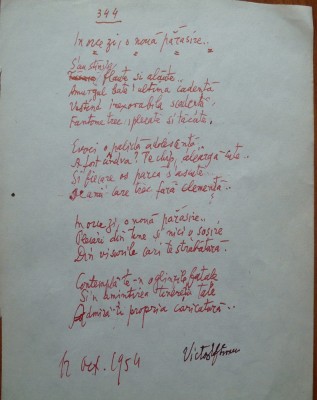 344
In orce zi, o nouă părăsire..
S'au stins
flaute și alăute..
Amurgul bate ultima cadență
Vestind inexorabila scadență
Fantome trec, plecate și tăcute.
Evoci o palidă adolescență..
A fost cândva? Te chip, aleargă
Și fiecare os parcă
De anii care trec fără clemență..
In orce zi, o nouă părăsire..
Plecări din tine și nici o sosire
Din visurile cari te străbătură.
Contemplă-te 'n oglinzile fatale
Și 'n amintirea tinereții tale
Admiră-ți propria caricatură..
12 oct. 1954
Victor Eftimiu